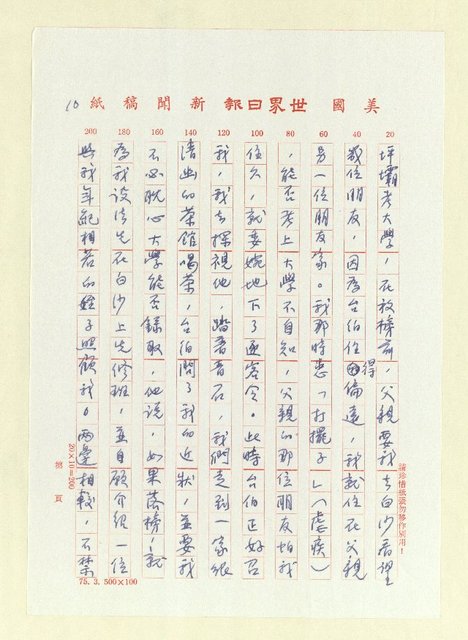 美國世界日報新聞稿紙
10
20
坪壩考大學,在放榜前,父親要我去白沙看望
40
幾位朋友,因為台伯住得偏遠,我就住在父親
60
另一位朋友家。我那時患「打擺子」(瘧疾)
80
,能否考上大學不自知,父親的那位朋友怕我
100
住久,就委婉地下了逐客令。此時台伯正好召
120
我,我去探視他,踏著青石,我們走到一家很
140
清幽的茶館喝茶,台伯問了我的近狀,並要我
160
不必耽心大學能否錄取,他說,如果落榜,就
180
為我設法先在白沙上先修班,並自願介紹一位
200
與我年紀相若的姪子照顧我。兩邊相較,不禁
請珍惜紙張勿移作別用!
20×10=200
第 頁
75.3.500×100